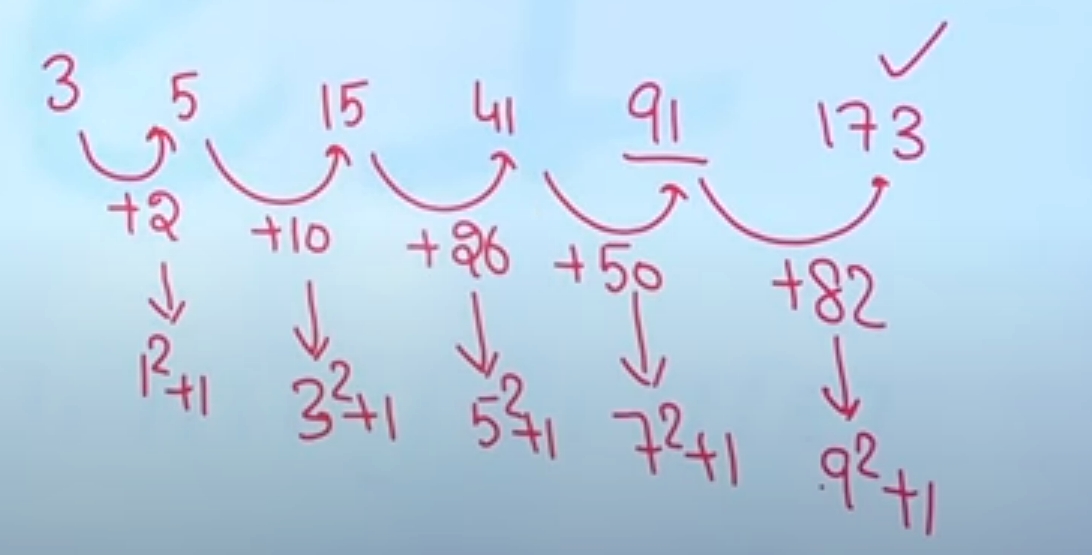 3 5 15 41 91 173 ✓
+2 +10 +26 +50 +82
↓ ↓ ↓ ↓ ↓
1²+1 3²+1 5²+1 7²+1 9²+1